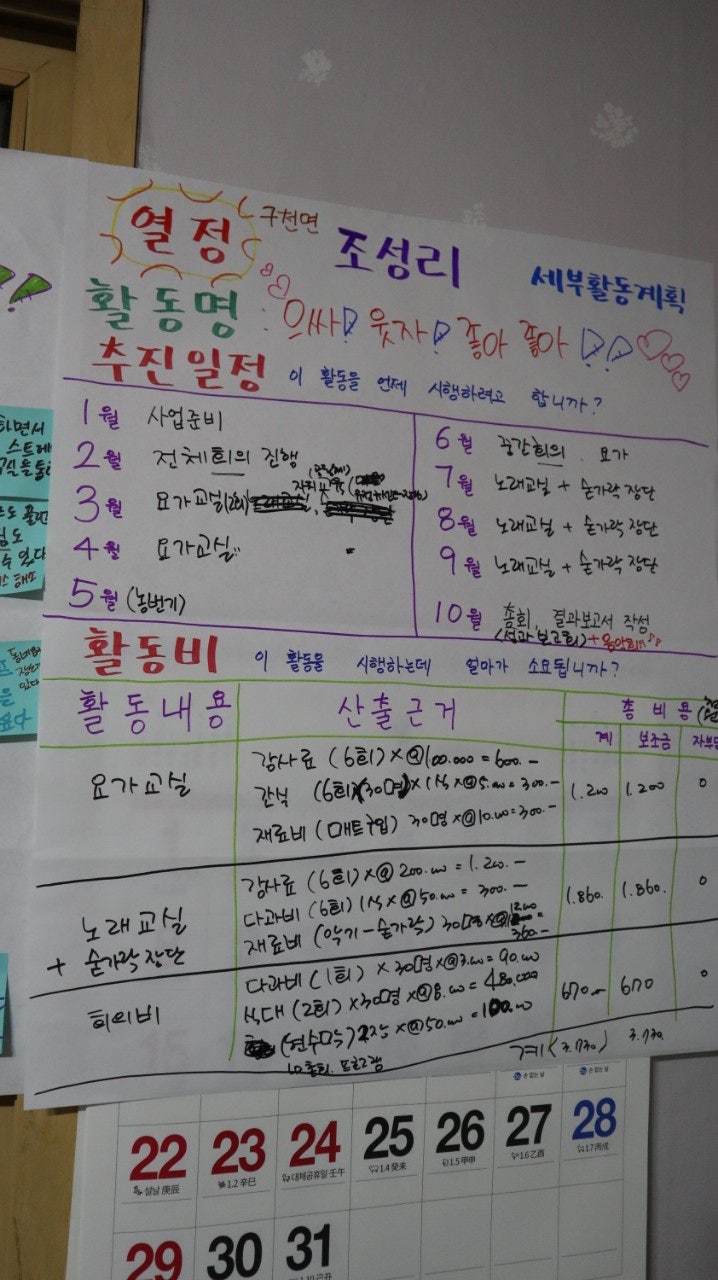 열정 구천면 조성리 세부활동계획
활동명 : 으싸! 웃자! 좋아 좋아!!
추진일정 이 활동을 언제 시행하려고 합니까?
1월 사업준비
2월 전체회의 진행
3월 요가교실(2회)
4월 요가교실
5월 (농번기)
6월 중간회의. 요가
7월 노래교실 + 숟가락 장단
8월 노래교실 + 숟가락 장단
9월 노래교실 + 숟가락 장단
10월 총회, 결과보고서 작성
(성과보고회) + 음악회♪♪
활동비 이 활동을 시행하는데 얼마가 소요됩니까?
활동내용 산출근거 총비용
계 보조금 자부담
요가교실
강사료 (6회) × @100.000 = 600.-
간식 (6회)(30명) × 1식 × @5.00 = 300.-
재료비 (매트구입) 30명 × @10.00 = 300.-
1.200 1.200 0
노래교실
+ 숟가락 장단
강사료 (6회) × @200.00 = 1.200.-
다과비 (6회) 1식 × @50.00 = 300.-
재료비 (악기-숟가락) 30명 × @1200 =
360.-
1.860. 1.860. 0
회의비
다과비 (1회) × 30명 × @3.00 = 90.00
식대 (2회) × 30명 × @8.00 = 480.000
(현수막) 2장 × @50.00 = 100.00
총회. 프로그램
670.- 670 0
계 (3.730) 3.730.
손없는날 손없는날
22 23 24 25 26 27 28
설날 庚辰 1.2 辛巳 대체공휴일 壬午 1.4 癸未 1.5 甲申 1.6 乙酉 1.7 丙戌
29 30 31